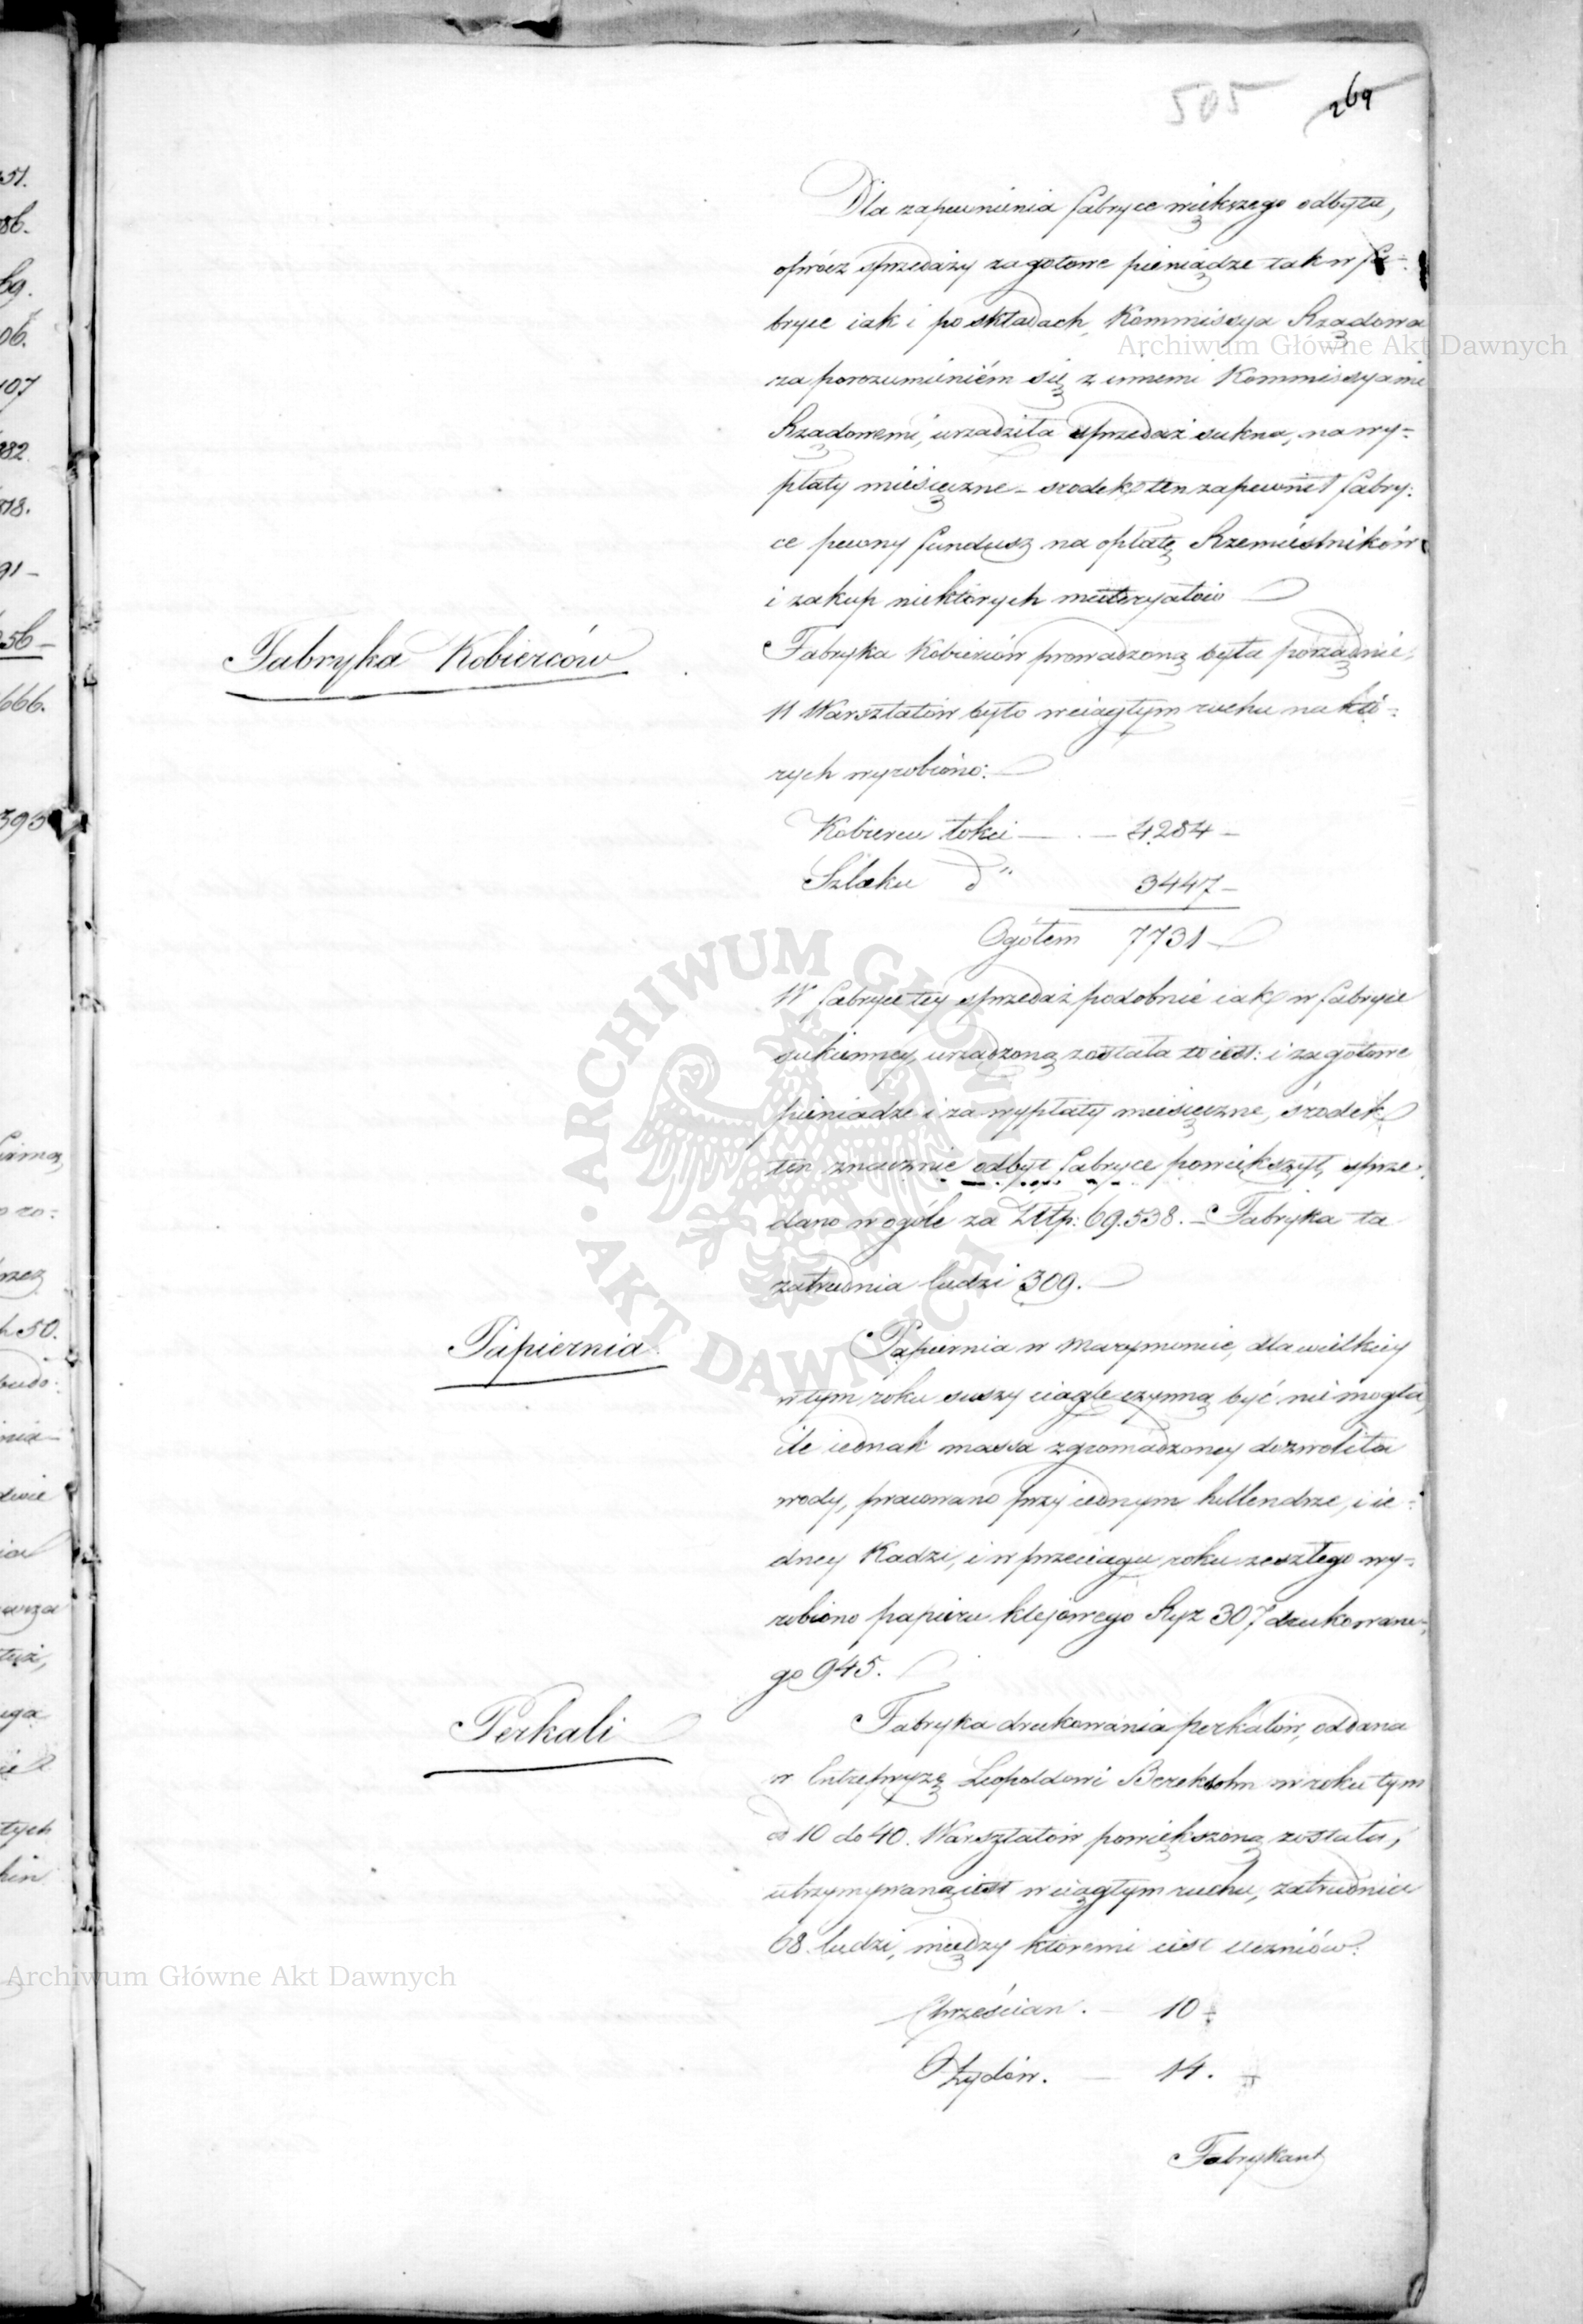 505 269
Dla zapewnienia fabryce większego odbytu,
oprócz sprzedaży za gotowe pieniądze tak w fa-
bryce iak i po składach, Kommissya Rządowa
za porozumieniem się z innemi Kommissyami
Rządowemi, urządziła sprzedaż sukna, na wy-
płaty miesięczne – srodek ten zapewnił fabry-
ce pewny fundusz na opłatę Rzemieslników
i zakup niektórych materyałów
Fabryka Kobierców
Fabryka Kobierców prowadzoną była porządnie,
11 Warsztatów było w ciągłym ruchu na któ-
rych wyrobiono:
Kobierca łokci — 4284 –
Szlaku d° 3447 –
Ogółem 7731
W fabryce tey sprzedaż podobnie iak w fabryce
sukienney, urządzoną została to iest: i za gotowe
pieniądze i za wypłaty miesięczne, środek
ten znacznie odbyt fabryce powiększył, sprze-
dano w ogóle za Złtp: 69.538. – Fabryka ta
zatrudnia ludzi 309.
Papiernia
Papiernia w Marymoncie, dla wielkiey
w tym roku suszy ciągle czynną być nie mogła,
ile iednak massa zgromadzoney dozwoliła
wody, pracowano przy iednym hollendrze, i ie-
dney Kadzi, i w przeciągu roku zeszłego wy-
robiono papieru klejowego Ryz 307 drukowane-
go 945.
Perkali
Fabryka drukowania perkalów, oddana
w Entrepryzę Leopoldowi Bereksohn w roku tym
od 10 do 40. Warsztatów powiększoną została,
utrzymywaną iest w ciągłym ruchu, zatrudnia
68 ludzi, między ktoremi iest uczniów:
Chrześcian. – 10
Żydów. — 14.
Fabrykant
51.
86.
69.
06.
107
382.
378.
91 –
56 –
666.
393
h 50.
tych
Archiwum Główne Akt Dawnych
ARCHIWUM GŁÓWNE AKT DAWNYCH
Archiwum Główne Akt Dawnych